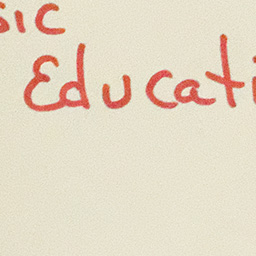 sic
Educati